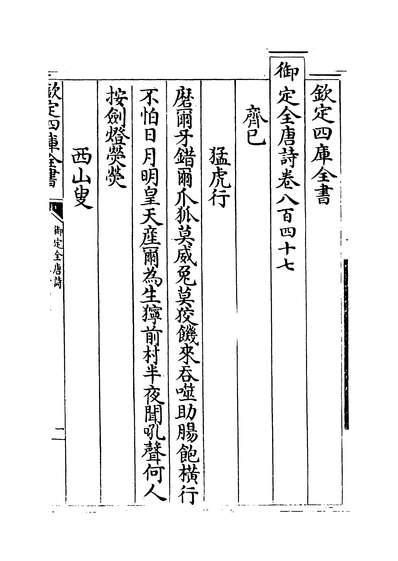 欽定四庫全書
御定全唐詩卷八百四十七
齊已
猛虎行
磨爾牙錯爾爪狐莫威兔莫狡饑來吞噬助腸飽橫行
不怕日月明皇天産爾為生獰前村半夜聞吼聲何人
按劍燈熒熒
西山叟
欽定四庫全書
御定全唐詩